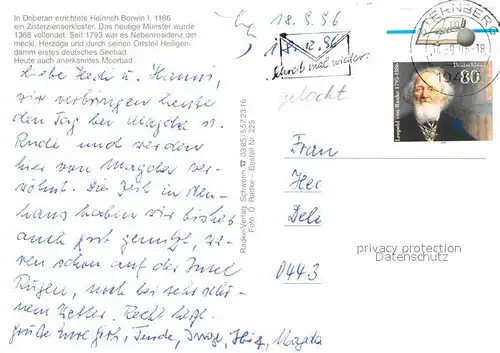 In Doberan errichtete Heinrich Borwin I. 1186
ein Zisterzienserkloster. Das heutige Münster wurde
1368 vollendet. Seit 1793 war es Nebenresidenz der
meckl. Herzöge und durch seinen Ortsteil Heiligen-
damm erstes deutsches Seebad.
Heute auch anerkanntes Moorbad
Liebe u. Hanni,
wir verbringen heute
den Tag bei Magda u.
Rudi und werden
hier von Magda ver-
wöhnt. Die Zeit in Neu-
haus haben wir bisher
auch gut genutzt, wa-
ren schon auf der Insel
Rügen, noch bei sehr schö-
nem Wetter. Recht herzl.
Grüße Magda
Radke-Verlag, Schwerin ☎ 0385/557 23 16
Foto: D. Radke – Bestell Nr. 225
18.9.96
18.12.96
Schreib mal wieder.
gelocht
DERNBERG
-9.96-18
194
Deutschland
80
Leopold von Ranke 1795-1886
Frau
Her
Dele
0443
privacy protection
Datenschutz